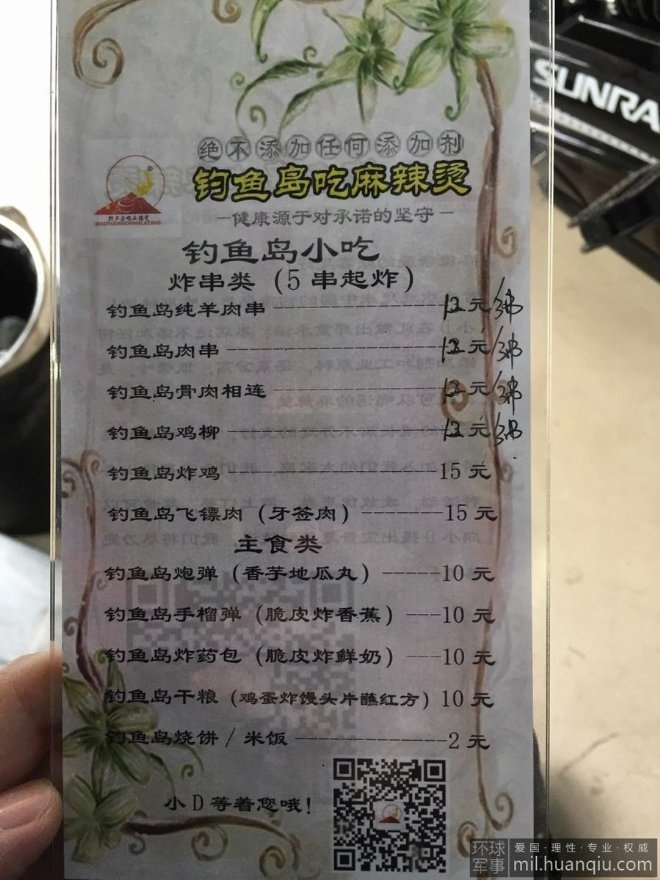 SUNRA
绝不添加任何添加剂
钓鱼岛吃麻辣烫
—健康源于对承诺的坚守—
钓鱼岛小吃
炸串类（5串起炸）
钓鱼岛纯羊肉串----------12元/串
钓鱼岛肉串----------12元/串
钓鱼岛骨肉相连----------12元/串
钓鱼岛鸡柳----------12元/串
钓鱼岛炸鸡----------15元
钓鱼岛飞镖肉（牙签肉）------15元
主食类
钓鱼岛炮弹（香芋地瓜丸）------10元
钓鱼岛手榴弹（脆皮炸香蕉）---10元
钓鱼岛炸药包（脆皮炸鲜奶）---10元
钓鱼岛干粮（鸡蛋炸馒头片蘸红方）10元
钓鱼岛烧饼/米饭----------2元
小D等着您哦！
环球军事
爱国·理性·专业·权威
mil.huanqiu.com